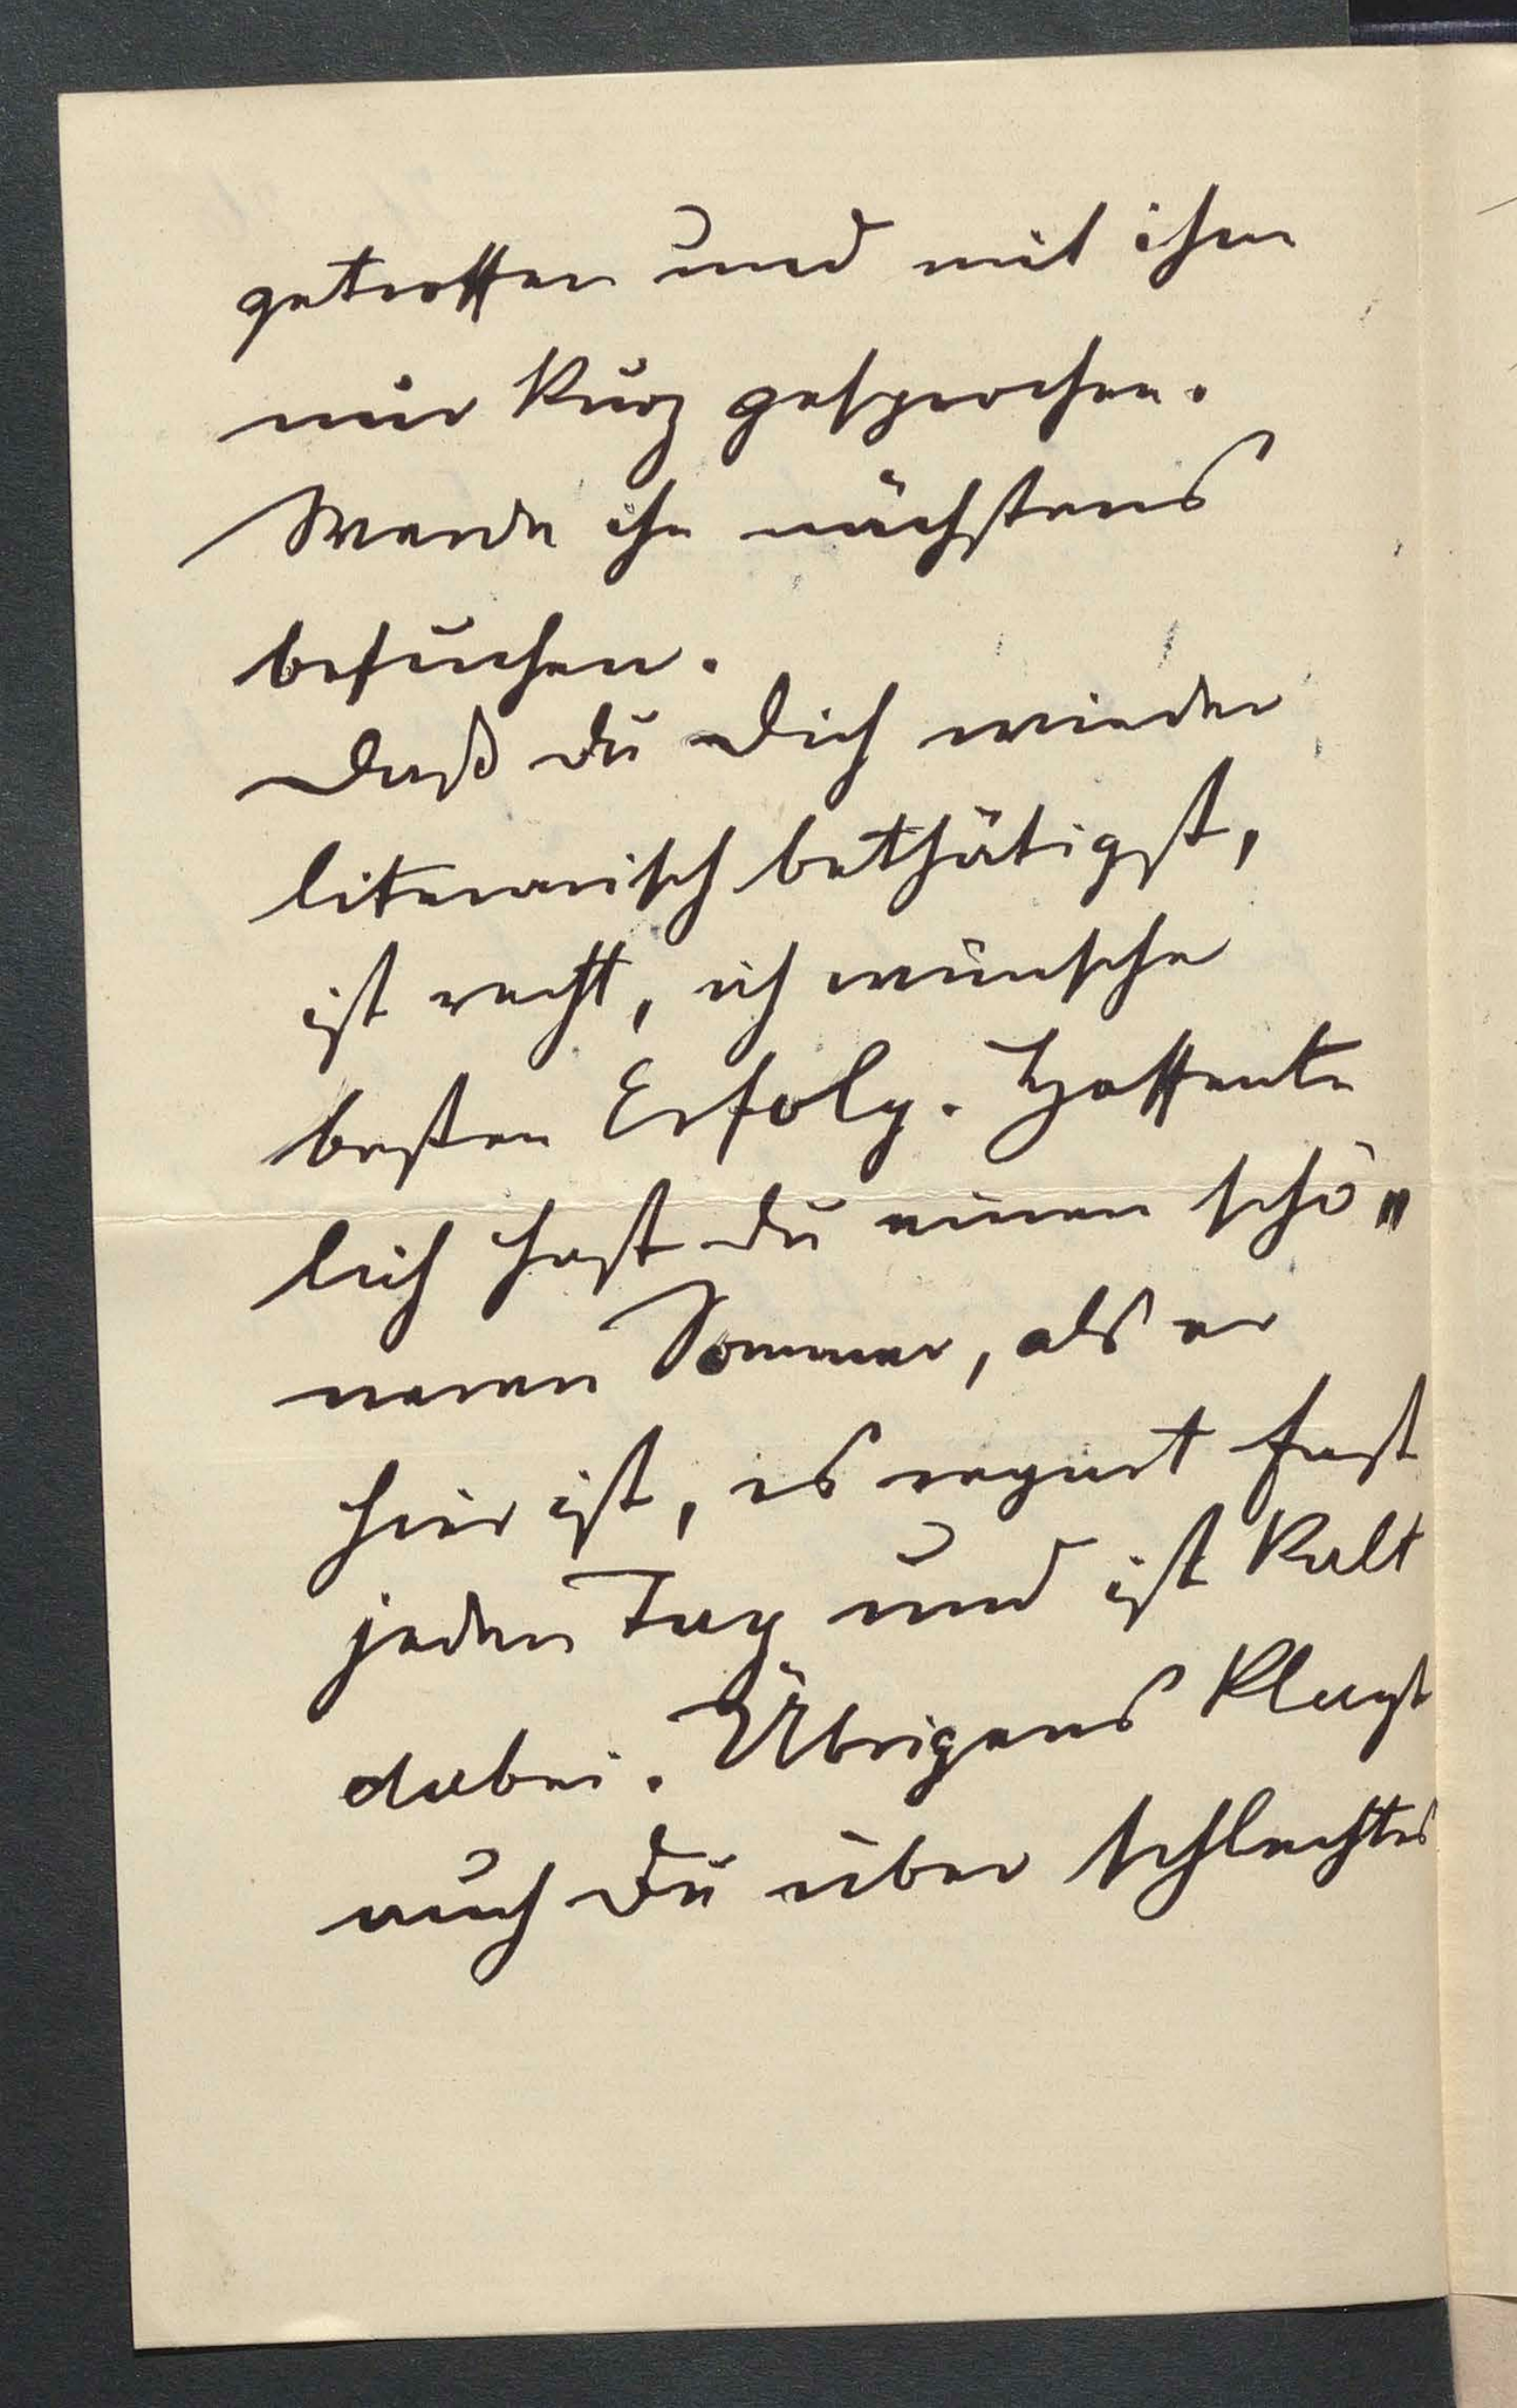 getroffen und mit ihm
nur kurz gesprochen.
Werde ihn nächstens
besuchen.
Daß du Dich wieder
literarisch bethätigst,
ist recht, ich wünsche
besten Erfolg. Hoffent
lich hast du einen schö„
neren Sommer, als er
hier ist, es regnet fast
jeden Tag und ist kalt
dabei. Übrigens klagst
auch du über schlechtes